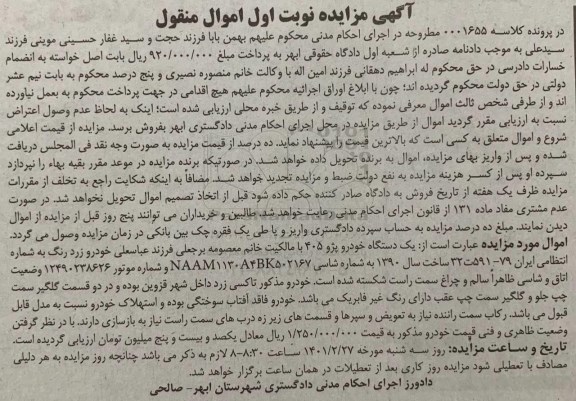 آگهی مزایده نوبت اول اموال منقول
در پرونده کلاسه ۰۰۰۱۶۵۵ مطروحه در اجرای احکام مدنی محکوم علیهم بهمن بابا فرزند حجت و سید غفار حسینی موینی فرزند
سیدعلی به موجب دادنامه صادره از شعبه اول دادگاه حقوقی ابهر به پرداخت مبلغ ۹۲۰/۰۰۰/۰۰۰ ریال بابت اصل خواسته به انضمام
خسارات دادرسی در حق محکوم له ابراهیم دهقانی فرزند امین اله با وکالت خانم منصوره نصیری و پنج درصد محکوم به بابت نیم عشر
دولتی در حق دولت محکوم گردیده اند؛ چون با ابلاغ اوراق اجرائیه محکوم علیهم هیچ اقدامی در جهت پرداخت محکوم به بعمل نیاورده
اند و از طرفی شخص ثالث اموال معرفی نموده که توقیف و از طریق خبره محلی ارزیابی شده است؛ اینک به لحاظ عدم وصول اعتراض
نسبت به ارزیابی مقرر گردید اموال از طریق مزایده در محل اجرای احکام مدنی دادگستری ابهر بفروش برسد. مزایده از قیمت اعلامی
شروع و اموال متعلق به کسی است که بالاترین قیمت را پیشنهاد نماید. ده درصد از قیمت مزایده به صورت وجه نقد فی المجلس دریافت
شده و پس از واریز بهای مزایده، اموال به برنده تحویل داده خواهد شد. در صورتیکه برنده مزایده در موعد مقرر بقیه بهاء را نپردازد
سپرده او پس از کسر هزینه مزایده به نفع دولت ضبط و مزایده تجدید خواهد شد. مضافا به اینکه شکایت راجع به تخلف از مقررات
مزایده ظرف یک هفته از تاریخ فروش به دادگاه صادر کننده حکم داده شود قبل از اتخاذ تصمیم اموال تحویل نخواهد شد. در صورت
عدم مشتری مفاد ماده ۱۳۱ از قانون اجرای احکام مدنی رعایت خواهد شد. طالبین و خریداران می توانند پنج روز قبل از مزایده از اموال
دیدن نمایند. مبلغ ده درصد مزایده به حساب سپرده دادگستری واریز و یا طی یک فقره چک بین بانکی در زمان مزایده وصول می گردد.
اموال مورد مزایده عبارت است از: یک دستگاه خودرو پژو ۴۰۵ با مالکیت خانم معصومه برجعلی فرزند عباسعلی خودرو زرد رنگ به شماره
انتظامی ایران ۷۹-۵۹۱ت۳۲ ساخت سال ۱۳۹۰ به شماره شاسی NAAM۱۱۳۰A۴BK۵۰۲۱۶۷ و شماره موتور ۱۲۴۹۰۲۳۸۶۲۶ وضعیت
اتاق و شاسی ظاهراً سالم و چراغ سمت راست شکسته شده است. خودرو مذکور تاکسی زرد داخل شهر قزوین بوده و در دو قسمت گلگیر سمت
چپ جلو و گلگیر سمت چپ عقب دارای رنگ غیر فابریک می باشد. خودرو فاقد آفتاب سوختگی بوده و استهلاک خودرو نسبت به مدل قابل
قبول می باشد. رکاب سمت راننده نیاز به تعویض و سپرها و قسمت های زیر زه درب های سمت راست نیاز به بازسازی دارند. با در نظر گرفتن
وضعیت ظاهری و فنی قیمت خودرو مذکور به قیمت ۱/۲۵۰/۰۰۰/۰۰۰ ریال معادل یکصد و بیست و پنج میلیون تومان ارزیابی گردیده است.
تاریخ و ساعت مزایده: روز سه شنبه مورخه ۱۴۰۱/۲/۲۷ ساعت ۸:۳۰-۸ لازم به ذکر می باشد چنانچه روز مزایده به هر دلیلی
مصادف با تعطیلی شود مزایده روز کاری بعد از تعطیلات در همان ساعت برگزار خواهد شد.
دادورز اجرای احکام مدنی دادگستری شهرستان ابهر- صالحی